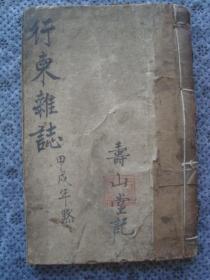 行東雜誌
甲戌年癸
壽山堂記